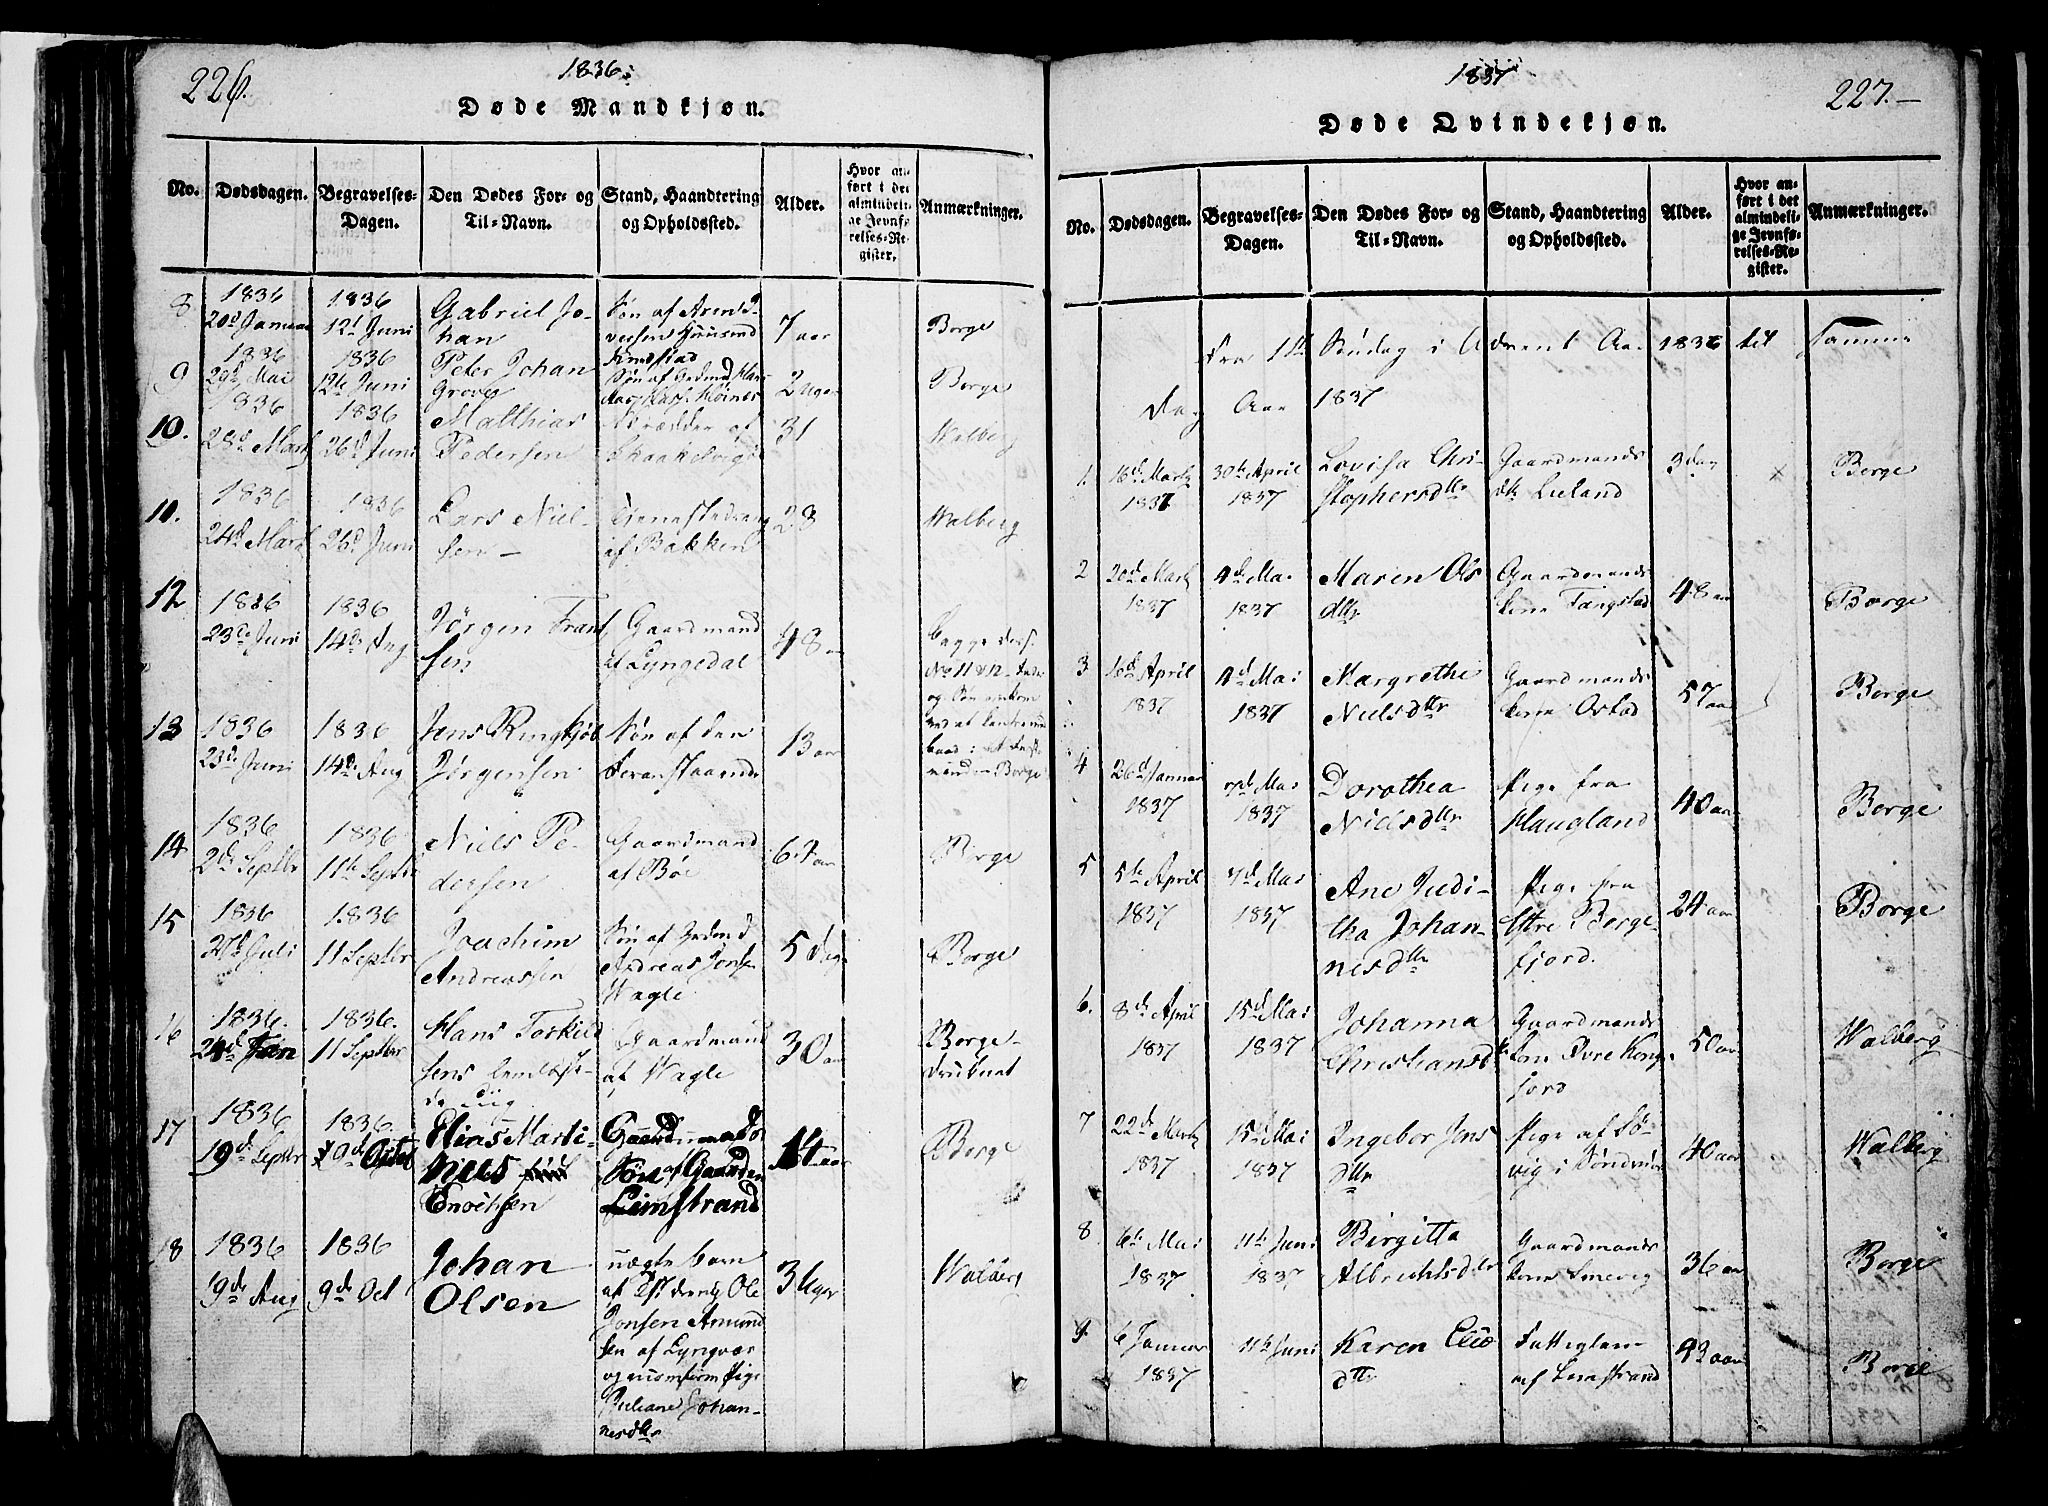 226.
1836
Døde Mandkjøn.
No. Dødsdagen. Begravelses-Dagen. Den Dødes For- og Til-Navn. Stand, Haandtering og Opholdssted. Alder. Hvor anført i det almindelige Jevnførelses-Register. Anmærkninger.
8 1836 20d Januar 1836 12t Juni Gabriel Johan Søn af Arent 7 aar Borge
9 1836 29d Mai 1836 12te Juni Peter Johan Grove Søn af Grdmd Hans 2 Uger Borge
10. 1836 28d Marts 1836 26d Juni Matthias Pedersen Skrædder af 31 Walberg
11. 1836 24d Marts 1836 26d Juni Lars Nielsen af Bakken 28 Walberg
12 1836 23de Juni 1836 14de Aug Jørgen Frantsen Gaardmand af Lyngedal 48 begge
No 11 & 12
13 1836 23de Juni 1836 14de Aug Jens Ringkjøb Jørgensen Søn af den foranstaaende 13 aar Borge
14 1836 2de Septbr 1836 11te Septbr Niels Pedersen Gaardmand af Bøe 64 aar Borge
15 1836 27d Juli 1836 11 Septbr Joachim Andreassen Søn af Grdmd Andreas Jonsen Wagle 5 Dage Borge
16 1836. 24d Jan 1836. 11 Septbr Hans Torkildsen Gaardmand af Wagle 30 aar Borge druknet
17 1836 19d Septbr 1836. 9d Octbr Elias Martinus Enoksen Gaardmands Søn af Gaarden Limstrand 14 aar Borge
18 1836 19de Aug 1836 9de Oct Johan Olsen uægte barn af Ole Jonsen Amundsen af Lyngvær og Pige Juliane Johannesdtr 3 Uger Walberg
1837
227.—
Døde Qvindekjøn.
No. Dødsdagen. Begravelses-Dagen. Den Dødes For- og Til-Navn. Stand, Haandtering og Opholdssted. Alder. Hvor anført i det almindelige Jevnførelses-Register. Anmærkninger.
Fra 1ste Søndag i Advent Aar 1836 til samme
Dag Aar 1837
1. 16d Marts 1837 30te April 1837 Lovisa Christophersdtr Gaardmands dtr Lieland 3 Dag x Borge
2 20d Marts 1837 4d Mai 1837 Maren Olsdttr Gaardmands kone Tangstad 48 aar Borge
3 16d April 1837 4d Mai 1837 Margrethe Nielsdttr Gaardmands kone Ostad 57 aar Borge
4 26d Januar 1837 7d Mai 1837 Dorothea Nielsdttr Pige fra Haugland 40 aar Borge
5 5te April 1837 7d Mai 1837 Ane Juditha Johannesdttr Pige fra Østre Borgefjord. 24 aar Borge
6. 8de April 1837 15d Mai 1837 Johanna Christiansd Gaardmands kone Øvre Kongsjord 50 aar Walberg
7 22de Marts 1837 15d Mai 1837 Ingebor Jensdttr Pige af Søvig i 40 aar Walberg
8. 6te Mai 1837 11te Juni 1837 Birgitta Albrichtsdtr Gaardmands kone Smevig 36 aar Borge
9 6 Januar 1837 11te Juni Karen Eliædttr Fattiglem af Limstrand 43 aar Borge